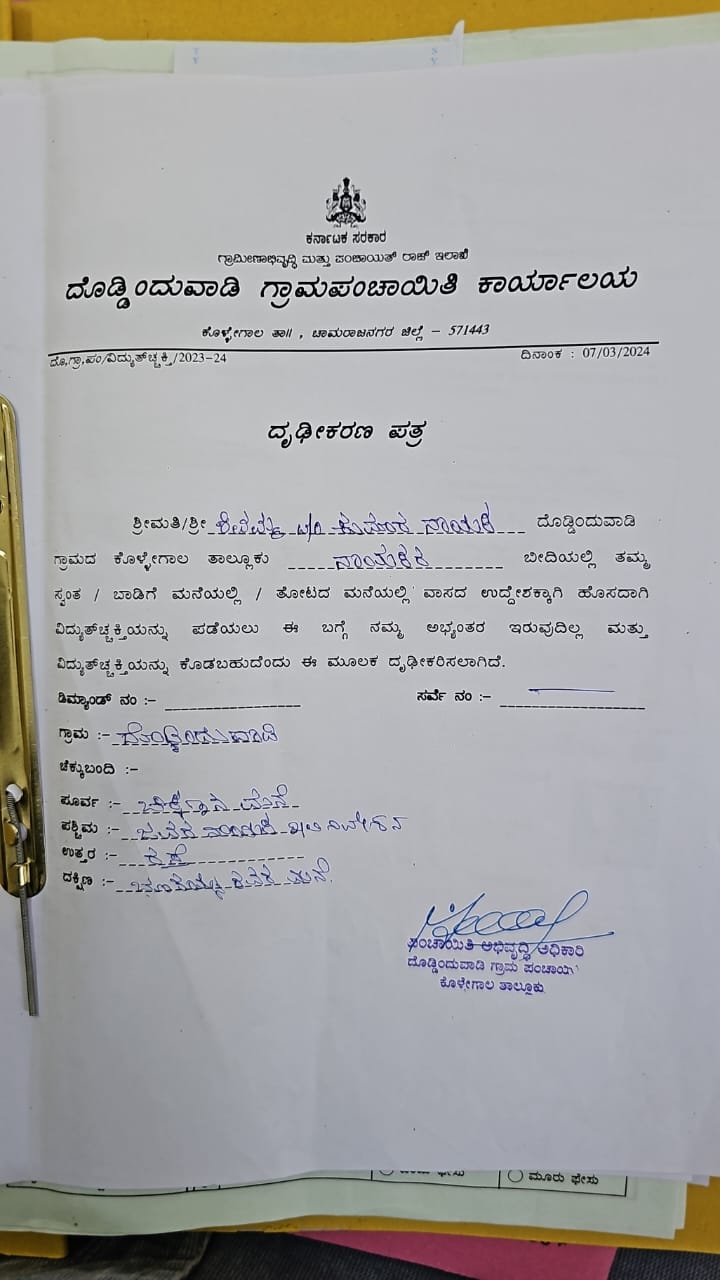 ಕರ್ನಾಟಕ ಸರಕಾರ
ಗ್ರಾಮೀಣಾಭಿವೃದ್ಧಿ ಮತ್ತು ಪಂಚಾಯತ್ ರಾಜ್ ಇಲಾಖೆ
ದೊಡ್ಡಿಂದುವಾಡಿ ಗ್ರಾಮಪಂಚಾಯಿತಿ ಕಾರ್ಯಾಲಯ
ಕೊಳ್ಳೇಗಾಲ ತಾ॥ , ಚಾಮರಾಜನಗರ ಜಿಲ್ಲೆ - 571443
ದೊ,ಗ್ರಾ,ಪಂ/ವಿದ್ಯುತ್‌ಚ್ಚಕ್ತಿ/2023-24 ದಿನಾಂಕ : 07/03/2024
ದೃಢೀಕರಣ ಪತ್ರ
ಶ್ರೀಮತಿ/ಶ್ರೀ ಕುಮಾರ ನಾಯಕ ದೊಡ್ಡಿಂದುವಾಡಿ
ಗ್ರಾಮದ ಕೊಳ್ಳೇಗಾಲ ತಾಲ್ಲೂಕು ನಾಯಕರ ಬೀದಿಯಲ್ಲಿ ತಮ್ಮ
ಸ್ವಂತ / ಬಾಡಿಗೆ ಮನೆಯಲ್ಲಿ / ತೋಟದ ಮನೆಯಲ್ಲಿ ವಾಸದ ಉದ್ದೇಶಕ್ಕಾಗಿ ಹೊಸದಾಗಿ
ವಿದ್ಯುತ್‌ಚ್ಚಕ್ತಿಯನ್ನು ಪಡೆಯಲು ಈ ಬಗ್ಗೆ ನಮ್ಮ ಅಭ್ಯಂತರ ಇರುವುದಿಲ್ಲ ಮತ್ತು
ವಿದ್ಯುತ್‌ಚ್ಚಕ್ತಿಯನ್ನು ಕೊಡಬಹುದೆಂದು ಈ ಮೂಲಕ ದೃಢೀಕರಿಸಲಾಗಿದೆ.
ಡಿಮ್ಯಾಂಡ್ ನಂ :- ಸರ್ವೆ ನಂ :-
ಗ್ರಾಮ :- ದೊಡ್ಡಿಂದುವಾಡಿ
ಚೆಕ್ಕುಬಂದಿ :-
ಪೂರ್ವ :- ಮನೆ
ಪಶ್ಚಿಮ :- ನಿವೇಶನ
ಉತ್ತರ :- ರಸ್ತೆ
ದಕ್ಷಿಣ :- ಮನೆ
ಪಂಚಾಯಿತಿ ಅಭಿವೃದ್ಧಿ ಅಧಿಕಾರಿ
ದೊಡ್ಡಿಂದುವಾಡಿ ಗ್ರಾಮ ಪಂಚಾಯಿ
ಕೊಳ್ಳೇಗಾಲ ತಾಲ್ಲೂಕು
ಮೂರು ಫೇಸು